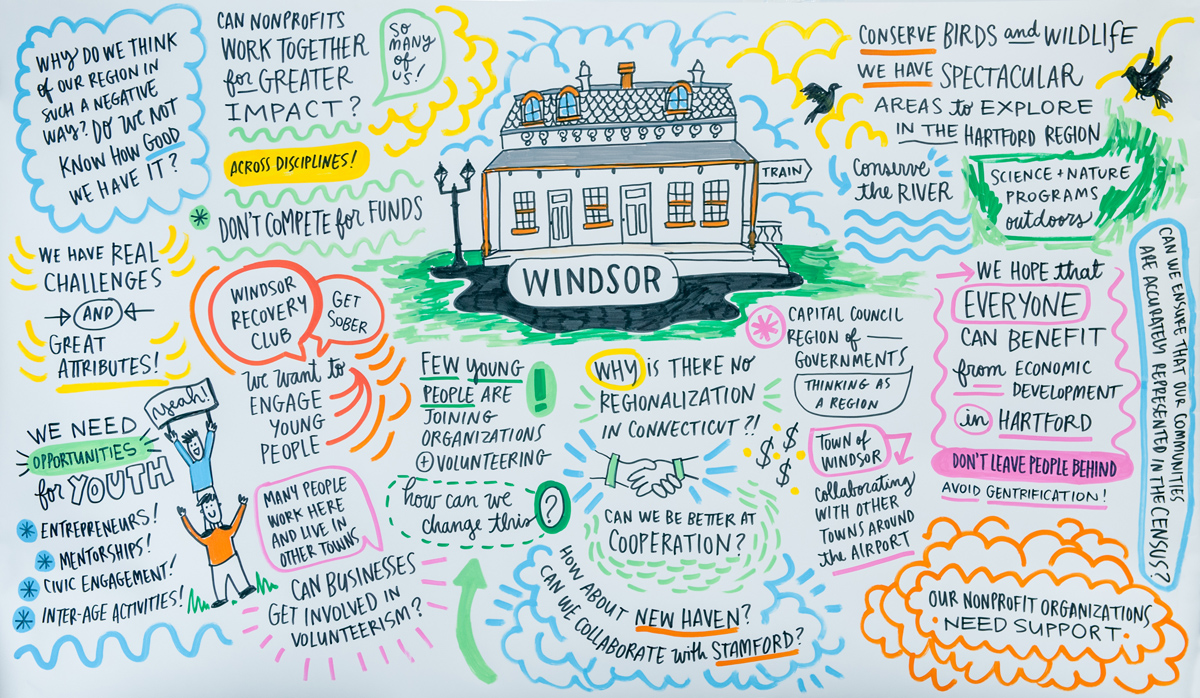 WHY DO WE THINK
of OUR REGION IN
SUCH A NEGATIVE
WAY? DO WE NOT
KNOW HOW GOOD
WE HAVE IT?
CAN NONPROFITS
WORK TOGETHER
for GREATER
IMPACT?
SO
MANY
OF
US!
ACROSS DISCIPLINES!
DON'T COMPETE for FUNDS
WE HAVE REAL
CHALLENGES
AND
GREAT
ATTRIBUTES!
WINDSOR
RECOVERY
CLUB
GET
SOBER
WE WANT to
ENGAGE
YOUNG
PEOPLE
WE NEED
OPPORTUNITIES
for YOUTH
yeah!
ENTREPRENEURS!
MENTORSHIPS!
CIVIC ENGAGEMENT!
INTER-AGE ACTIVITIES!
MANY PEOPLE
WORK HERE
AND LIVE IN
OTHER TOWNS
CAN BUSINESSES
GET INVOLVED IN
VOLUNTEERISM?
TRAIN
WINDSOR
FEW YOUNG
PEOPLE ARE
JOINING
ORGANIZATIONS
+ VOLUNTEERING
!
how can we
change this
?
WHY IS THERE NO
REGIONALIZATION
IN CONNECTICUT?!
CAN WE BE BETTER AT
COOPERATION?
HOW ABOUT NEW HAVEN?
CAN WE COLLABORATE with STAMFORD?
$ $
$ $
CAPITAL COUNCIL
REGION OF —
GOVERNMENTS
THINKING AS
A REGION
TOWN OF
WINDSOR
Collaborating
WITH OTHER
TOWNS AROUND
the AIRPORT
CONSERVE BIRDS and WILDLIFE
WE HAVE SPECTACULAR
AREAS to EXPLORE
IN THE HARTFORD REGION
Conserve
the RIVER
SCIENCE + NATURE
PROGRAMS
outdoors
WE HOPE that
EVERYONE
CAN BENEFIT
from ECONOMIC
DEVELOPMENT
in HARTFORD
DON'T LEAVE PEOPLE BEHIND
AVOID GENTRIFICATION!
CAN WE ENSURE THAT OUR COMMUNITIES
ARE ACCURATELY REPRESENTED IN THE CENSUS?
OUR NONPROFIT ORGANIZATIONS
NEED SUPPORT